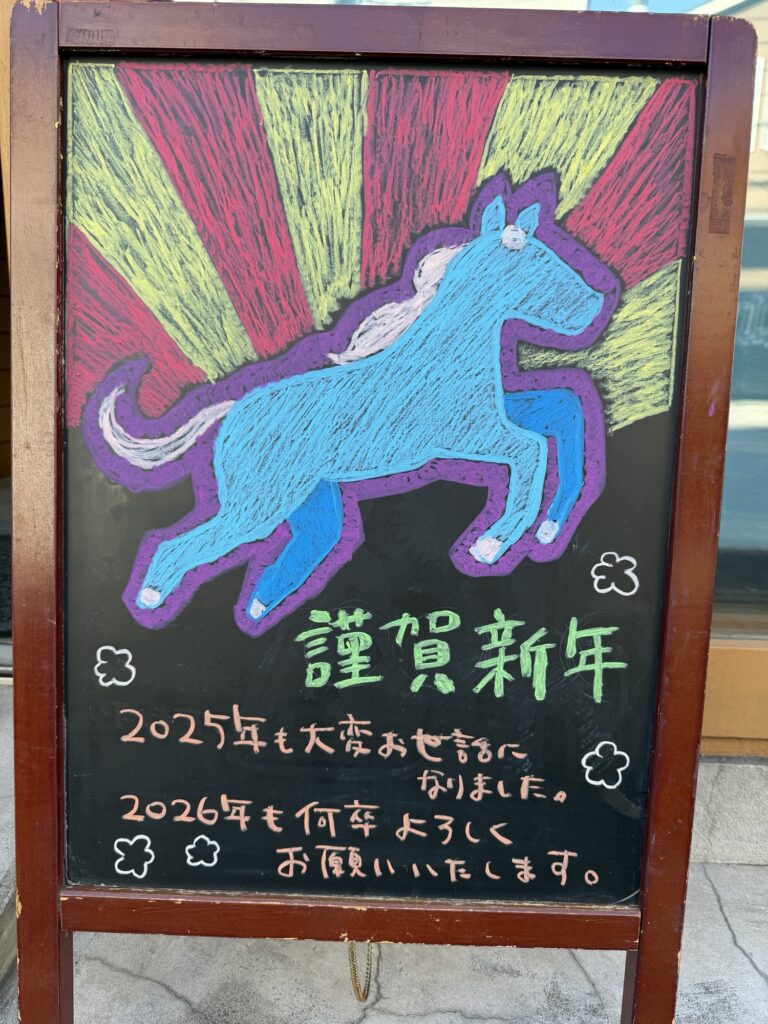 謹賀新年
2025年も大変お世話に
なりました。
2026年も何卒よろしく
お願いいたします。